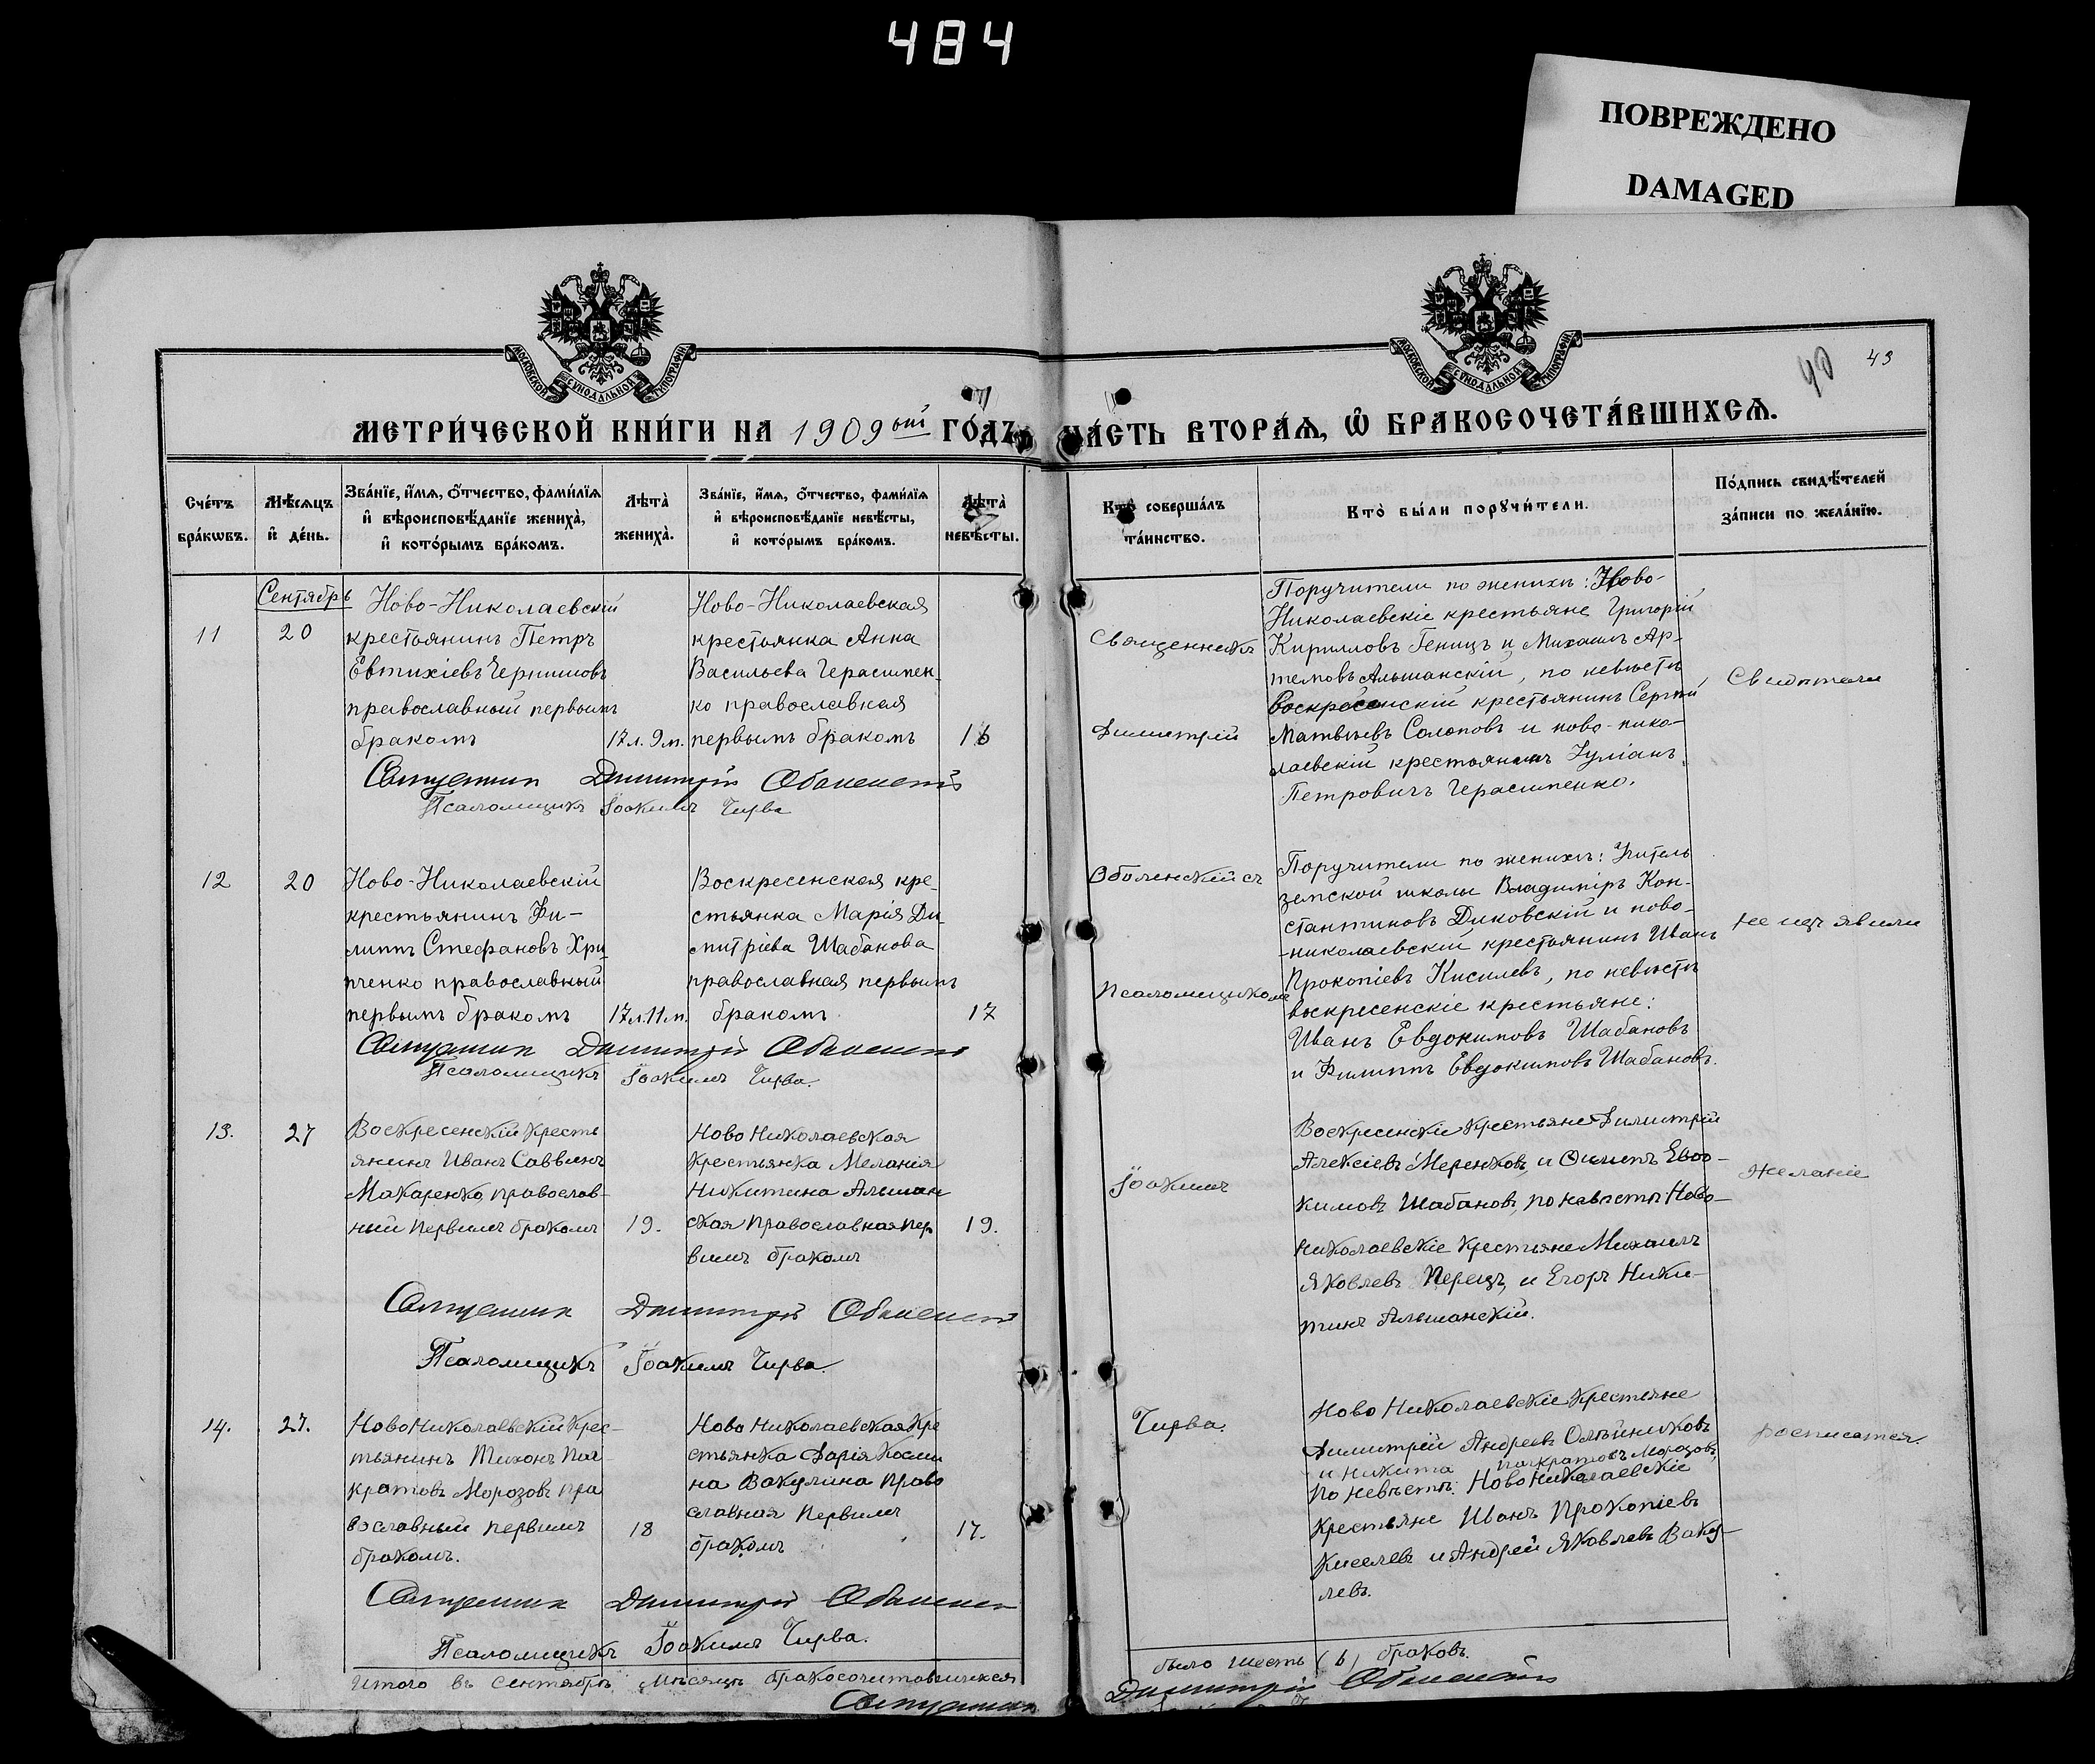 484
ПОВРЕЖДЕНО
DAMAGED
МОСКОВСКОЙ СѴНОДАЛЬНОЙ ТИПОГРАФІИ
МОСКОВСКОЙ СѴНОДАЛЬНОЙ ТИПОГРАФІИ
40 43
МЕТРИ́ЧЕСКОЙ КНИ́ГИ НА 1909ый ГО́ДЪ, ЧА́СТЬ ВТОРА́Ѧ, Ѡ҆ БРАКОСОЧЕТА́ВШИХСѦ.
Сче́тъ бра́кѡвъ.
Мѣ́сѧцъ и҆ де́нь.
Зва́нїе, и҆́мѧ, ѻ҆́тчество, фами́лїѧ и҆ вѣроисповѣ́данїе жениха̀, и҆ кото́рымъ бра́комъ.
Лѣта̀ жениха̀.
Зва́нїе, и҆́мѧ, ѻ҆́тчество, фами́лїѧ и҆ вѣроисповѣ́данїе невѣ́сты, и҆ кото́рымъ бра́комъ.
Лѣта̀ невѣ́сты.
Кто̀ соверша́лъ та́инство.
Кто̀ бы́ли порꙋчи́тели.
По́дпись свидѣ́телей за́писи по жела́нїю.
Сентябрь
11
20
Ново-Николаевскій
крестьянинъ Петръ
Евтихіевъ Чернишовъ
православный первымъ
бракомъ
17л. 9м.
Ново-Николаевская
крестьянка Анна
Васильева Герасимен-
ко православная
первымъ бракомъ
16
Священникъ
Димитрій
Поручители по женихѣ: Ново-
Николаевскіе крестьяне Григорій
Кирилловъ Геницъ и Михаилъ Ар-
темовъ Альшанскій, по невѣстѣ
Воскресенскій крестьянинъ Сергѣй
Матвѣевъ Солоповъ и ново-нико-
лаевскій крестьянинъ Іуліанъ
Петровичъ Герасименко.
Свидѣтели
Священник Димитрій Оболенскій
Псаломщикъ Іоакимъ Чирва
12
20
Ново-Николаевскій
крестьянинъ Фи-
липпъ Стефановъ Хри-
пченко православный
первымъ бракомъ
17л.11м.
Воскресенская кре-
стьянка Марія Ди-
митріева Шабанова
православная первымъ
бракомъ
17
Оболенскій съ
Псаломщикомъ
Поручители по женихѣ: Учитель
земской школы Владиміръ Кон-
стантиновъ Диковскій и ново-
-николаевскій крестьянинъ Иванъ
Прокопіевъ Кисилевъ, по невѣстѣ
воскресенскіе крестьяне:
Иванъ Евдокимовъ Шабановъ
и Филиппъ Евдокимовъ Шабановъ.
не изъявили
Священник Димитрій Оболенскій
Псаломщикъ Іоакимъ Чирва.
13.
27
Воскресенскій кресть
янинъ Иванъ Саввинъ
Макаренко, православ-
ный первымъ бракомъ
19.
Ново Николаевская
крестьянка Меланія
Никитина Альшан
ская православная пер
вымъ бракомъ
19.
Іоакимъ
Воскресенскіе крестьяне Димитрій
Алексіевъ Меренковъ, и Филипъ Евдо-
кимовъ Шабановъ, по невѣстѣ Ново-
николаевскіе крестьяне Михаилъ
Яковлевъ Перецъ, и Егоръ Ники-
тинъ Альшанскій.
желаніе
Священник Димитрій Оболенскій
Псаломщикъ Іоакимъ Чирва.
14.
27.
Ново Николаевскій крес-
тьянинъ Тихонъ Пан
кратовъ Морозовъ пра
вославный первымъ
бракомъ.
18
Ново Николаевская кре
стьянка Дарія Косми
на Вакулина право
славная первымъ
бракомъ
17.
Чирва.
Ново Николаевскіе крестьяне
Димитрій Андреевъ Олѣйниковъ
и Никита Панкратовъ Морозовъ,
по невѣстѣ: Ново Николаевскіе
крестьяне Иванъ Прокопіевъ
Киселевъ и Андрей ЯковлевъВаку-
левъ.
росписатся.
Священник Димитрій Оболенскій
Псаломщикъ Іоакимъ Чирва.
Итого въ Сентябрѣ мѣсяцѣ бракосочитавшихся было шесть (6) браковъ.
Священник Димитрій Оболенскій